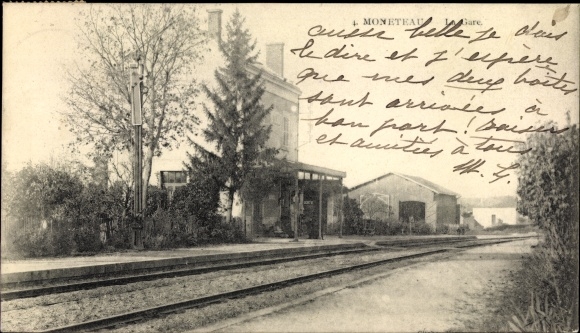 4. MONETEAU. La Gare.
aussi belle, je dois
le dire et j'espère
que mes deux boîtes
sont arrivées à
bon port! baisers
et amitiés à tous
M. L.